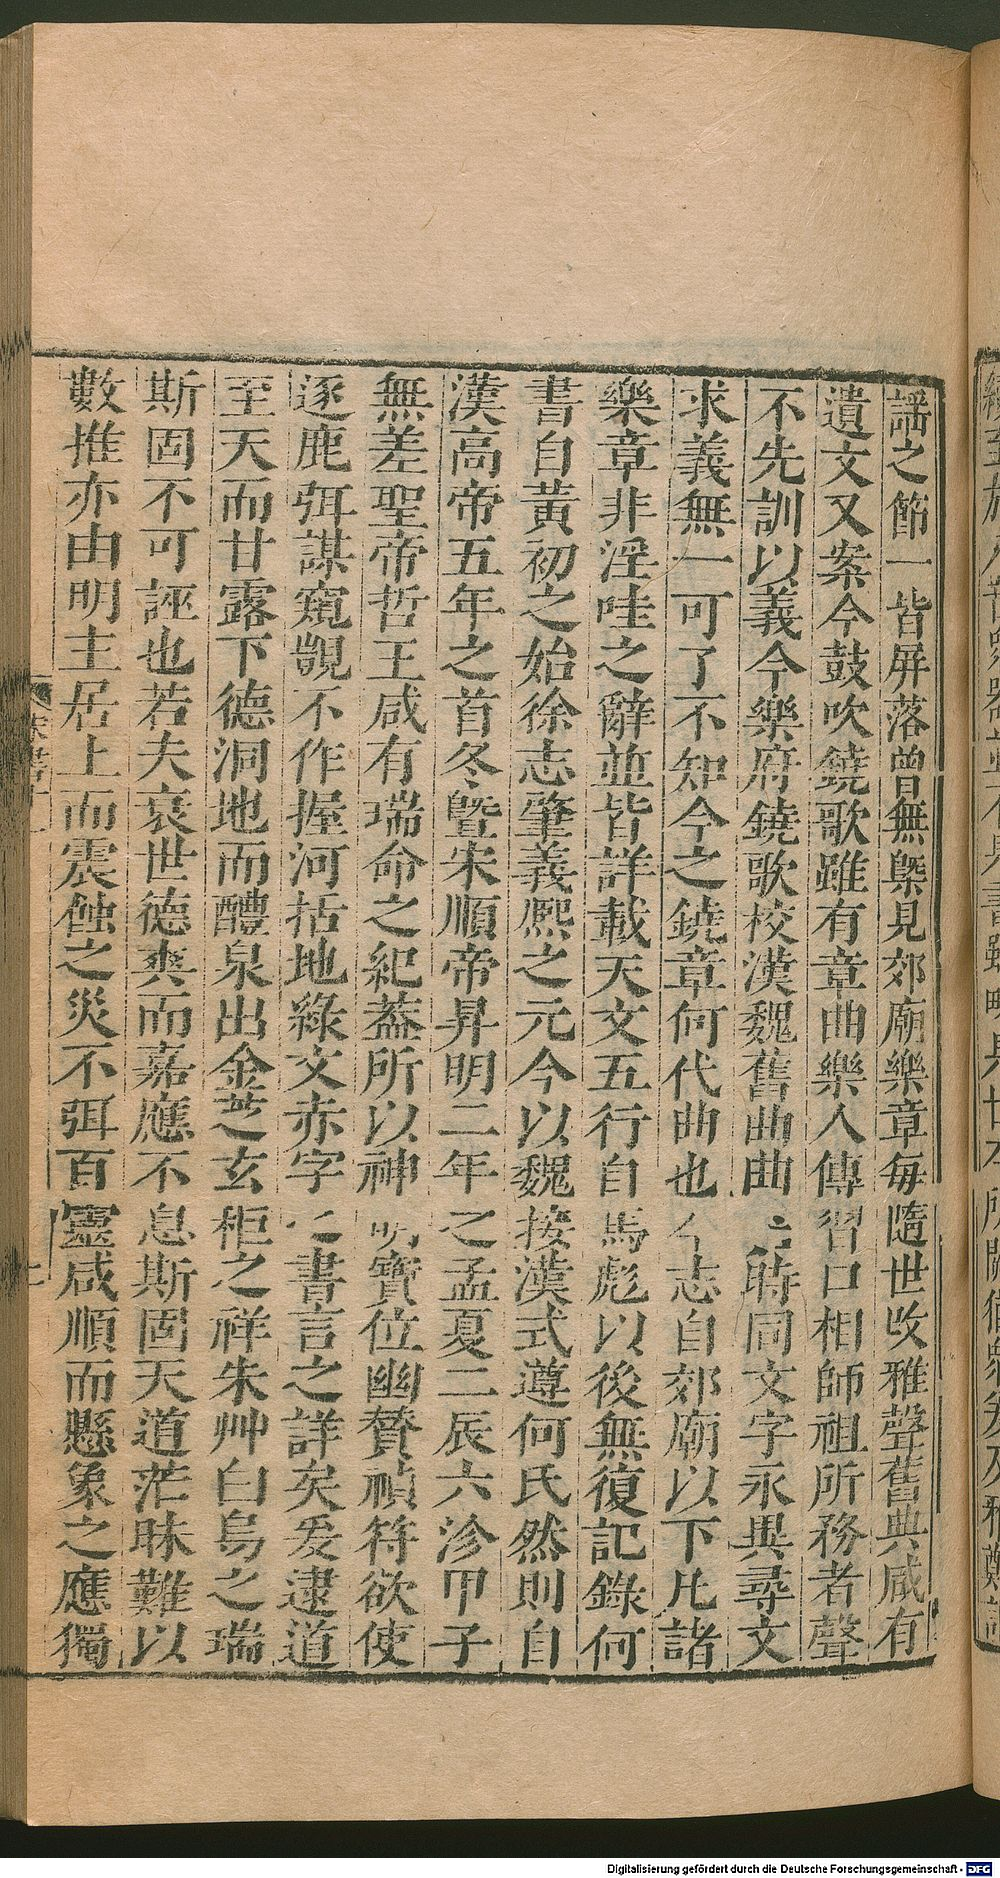 謡之節一皆屏落曾無槩見郊廟樂章每隨世改雅聲舊典咸有
遺文又案今鼓吹鐃歌雖有章曲樂人傳習口相師祖所務者聲
不先訓以義今樂府鐃歌校漢魏舊曲曲名時同文字永異尋文
求義無一可了不知今之鐃章何代曲也今志自郊廟以下凡諸
樂章非淫哇之辭並皆詳載天文五行自馬彪以後無復記錄何
書自黃初之始徐志肇義熙之元今以魏接漢式遵何氏然則自
漢高帝五年之首冬曁宋順帝昇明二年之孟夏二辰六沴甲子
無差聖帝哲王咸有瑞命之紀葢所以神明寶位幽賛禎符欲使
逐鹿弭謀窺覬不作握河括地綠文赤字之書言之詳矣爰逮道
至天而甘露下德洞地而醴泉出金芝玄秬之祥朱艸白烏之瑞
斯固不可誣也若夫衰世德爽而嘉應不息斯固天道茫昧難以
數推亦由明主居上而震蝕之災不弭百靈咸順而懸象之應獨
Digitalisierung gefördert durch die Deutsche Forschungsgemeinschaft - DFG